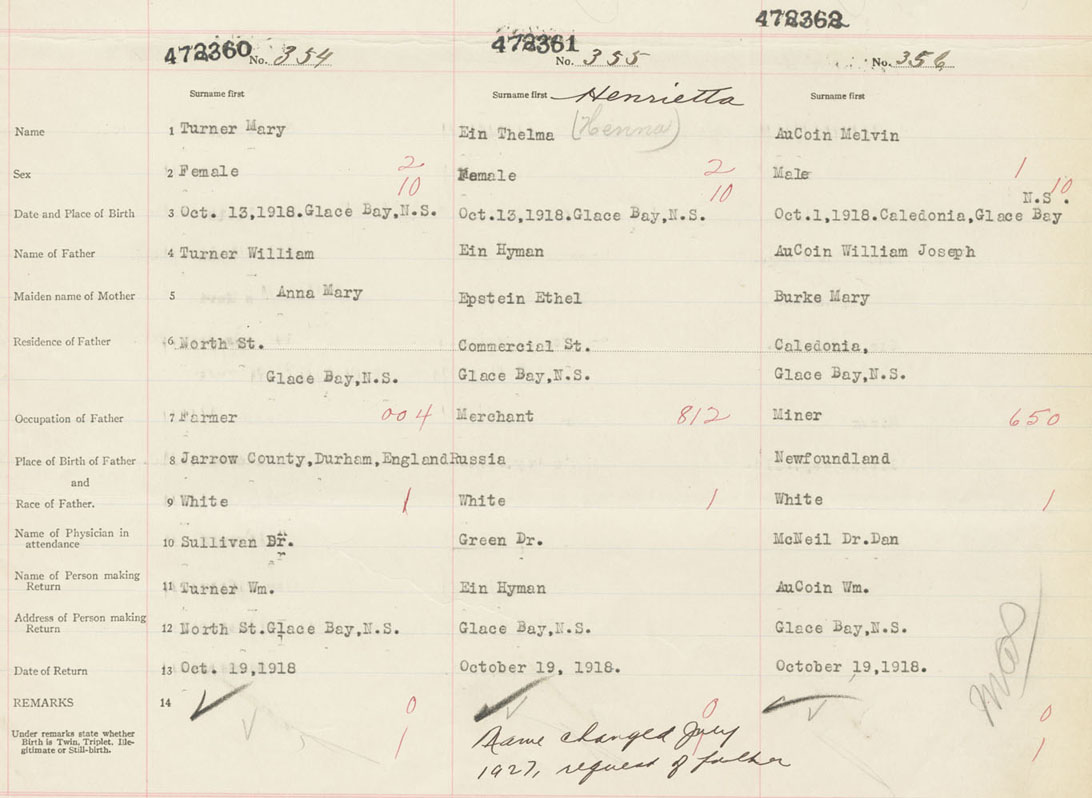 472360 No. 354 472361 No. 355 472362 No. 356
Surname first Surname first Henrietta Surname first
Name 1 Turner Mary Ein Thelma (Henna) AuCoin Melvin
Sex 2 Female 2 Female 2 Male 1
10 10 10
N.S.
Date and Place of Birth 3 Oct. 13,1918.Glace Bay,N.S. Oct.13,1918.Glace Bay,N.S. Oct.1,1918.Caledonia,Glace Bay
Name of Father 4 Turner William Ein Hyman AuCoin William Joseph
Maiden name of Mother 5 Anna Mary Epstein Ethel Burke Mary
Residence of Father 6 North St. Commercial St. Caledonia,
Glace Bay,N.S. Glace Bay,N.S. Glace Bay,N.S.
Occupation of Father 7 Farmer 004 Merchant 812 Miner 650
Place of Birth of Father 8 Jarrow County,Durham,England Russia Newfoundland
and
Race of Father. 9 White 1 White 1 White 1
Name of Physician in
attendance 10 Sullivan Dr. Green Dr. McNeil Dr.Dan
Name of Person making
Return 11 Turner Wm. Ein Hyman AuCoin Wm.
Address of Person making
Return 12 North St.Glace Bay,N.S. Glace Bay,N.S. Glace Bay,N.S.
Date of Return 13 Oct. 19,1918 October 19, 1918. October 19,1918.
REMARKS 14 0 0 0
Under remarks state whether
Birth is Twin, Triplet, Ille-
gitimate or Still-birth. 1 Name changed July 1
1927, request of father